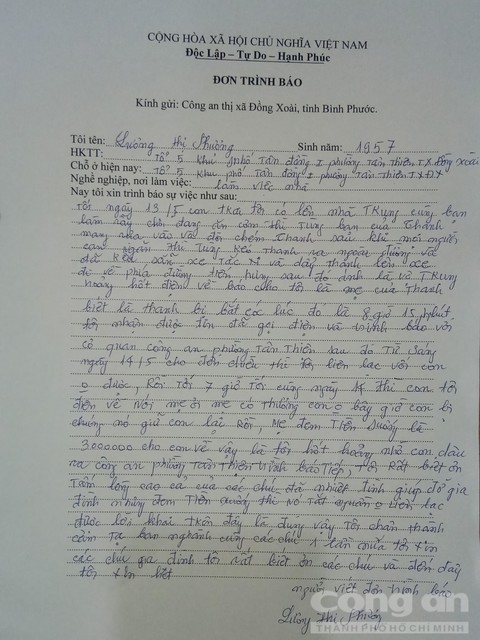 CỘNG HÒA XÃ HỘI CHỦ NGHĨA VIỆT NAM
Độc Lập – Tự Do – Hạnh Phúc
ĐƠN TRÌNH BÁO
Kính gửi: Công an thị xã Đồng Xoài, tỉnh Bình Phước.
Tôi tên: Lường Thị Phường Sinh năm: 1957
HKTT: Tổ 5 khu phố Tân đồng I phường Tân Thiện TX đồng xoài
Chỗ ở hiện nay: Tổ 5 khu phố Tân đồng I phường Tân Thiện TX ĐX
Nghề nghiệp, nơi làm việc: làm việc nhà
Nay tôi xin trình báo sự việc như sau:
Tối ngày 13/5 con trai tôi có lên nhà Trung cùng bạn
làm rẫy chơi đang ăn cơm thì Tung bạn của Thành
mang dao vào với đòi chém Thanh sau khi mọi người
can ngăn thì Tung kéo thanh ra ngoài đường và
đã kêu sẵn xe Tắc xi và đẩy thành lên xe
đi về phía đường tiến hưng sau đó anh là và Trung
hoảng hốt điện về báo cho tôi là mẹ của Thanh
biết là thanh bị bắt cóc lúc đó là 8 giờ 15 phút
tôi nhận được tin đã gọi điện và trình báo với
cơ quan công an phường Tân Thiện sau đó Từ sáng
ngày 14/5 cho đến chiều thì tôi liên lạc với con
o được, Rồi tới 7 giờ tối cùng ngày 14 thì con tôi
điện về nói mẹ ơi mẹ có thương con o bây giờ con bị
chúng nó giữ con lại rồi, mẹ đem tiền xuống là
3000000 cho con về vậy là tôi hốt hoảng nhờ con dâu
ra công an phường Tân Thiện trình báo tiếp, tôi rất biết ơn
tấm lòng cao cả của các chú đã nhiệt tình giúp đỡ gia
đình nhưng đem tiền xuống thì nó tắt nguồn o liên lạc
được lời khai trên đây là đúng vậy tôi chân thành
cảm tạ ban nghành cùng các chú 1 lần nữa tôi xin
các chú gia đình tôi rất biết ơn các chú và đến đây
tôi xin hết
người viết đơn trình báo
Lường Thị Phường
Công an
THÀNH PHỐ HỒ CHÍ MINH